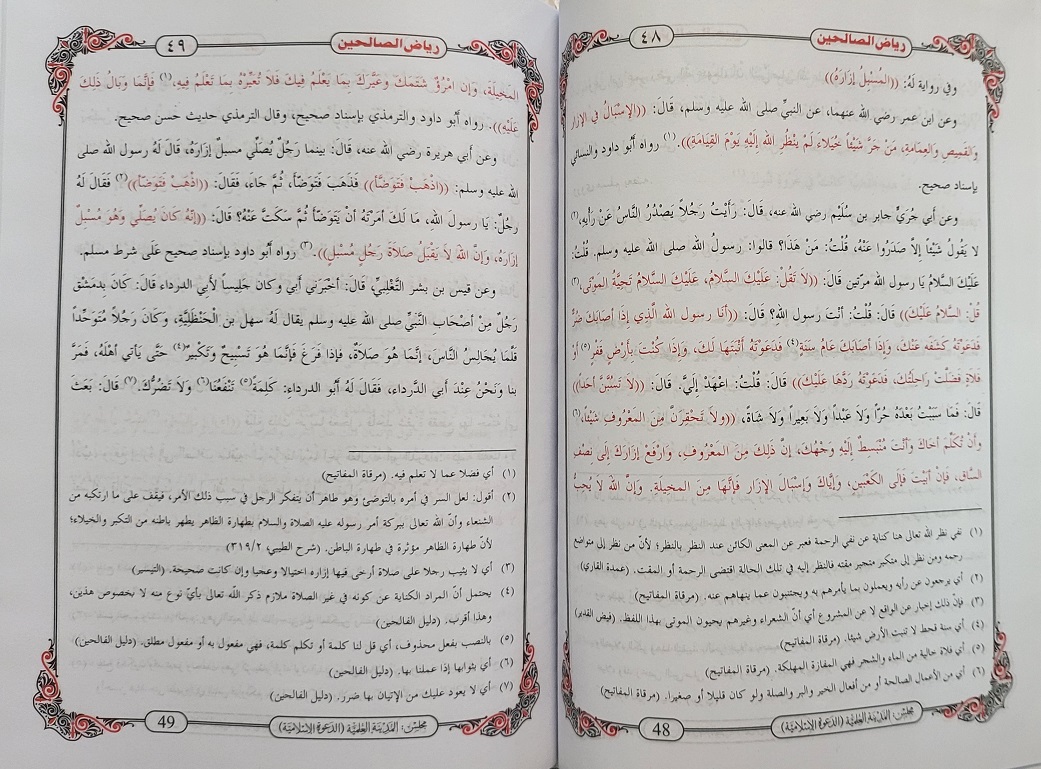 رياض الصالحين
٤٨
وفي رواية لَهُ: ((المُسْبِلُ إزَارَهُ))
وعن ابن عمر رضي الله عنهما، عن النبيِّ صلى الله عليه وسلم، قَالَ: ((الإسْبَالُ في الإزار
وَالقَمِيصِ وَالعِمَامَةِ، مَنْ جَرَّ شَيْئاً خُيَلاءَ لَمْ يَنْظُرِ الله إِلَيْهِ يَوْمَ القِيَامَةِ)).(١) رواه أَبُو داود والنسائي
بإسناد صحيح.
وعن أَبي جُرَيٍّ جابر بن سُلَيْم رضي الله عنه، قَالَ: رَأَيْتُ رَجُلاً يَصْدُرُ النَّاسُ عَنْ رَأْيِهِ،(٢)
لا يَقُولُ شَيْئاً إِلاَّ صَدَرُوا عَنْهُ، قُلْتُ: مَنْ هَذَا؟ قالوا: رسولُ الله صلى الله عليه وسلم. قُلْتُ:
عَلَيْكَ السَّلامُ يا رسول الله مرّتين قَالَ: ((لا تَقُلْ: عَلَيْكَ السَّلامُ، عَلَيْكَ السَّلامُ تَحِيَّةُ المَوْتَى،(٣)
قُلْ: السَّلامُ عَلَيْكَ)) قَالَ: قُلْتُ: أنْتَ رسول الله؟ قَالَ: ((أنا رسول الله الَّذِي إِذَا أصَابَكَ ضُرٌّ
فَدَعَوْتَهُ كَشَفَه عَنْكَ، وَإِذَا أصَابَكَ عَامُ سَنَةٍ(٤) فَدَعَوْتَهُ أَنْبَتَهَا لَكَ، وَإِذَا كُنْتَ بِأَرْضٍ قَفْرٍ(٥) أَوْ
فَلاَةٍ فَضَلَّتْ رَاحِلَتُكَ، فَدَعَوْتَهُ رَدَّهَا عَلَيْكَ)) قَالَ: قُلْتُ: اعْهَدْ إِلَيَّ. قَالَ: ((لاَ تَسُبَّنَّ أحَداً))
قَالَ: فَمَا سَبَبْتُ بَعْدَهُ حُرّاً وَلاَ عَبْداً وَلاَ بَعِيراً وَلاَ شَاةً، ((ولاَ تَحْقِرَنَّ مِنَ المَعْرُوفِ شَيْئاً،(٦)
وأَنْ تُكَلِّمَ أخَاكَ وَأنْتَ مُنْبَسِطٌ إِلَيْهِ وَجْهُكَ، إنَّ ذلِكَ مِنَ المَعْرُوفِ، وَارْفَعْ إزَارَكَ إِلَى نِصْفِ
السَّاقِ، فَإنْ أبَيْتَ فَإلَى الكَعْبَينِ، وَإيَّاكَ وَإسْبَالَ الإزَار فَإنَّهَا مِنَ المَخِيلَةِ. وَإنَّ اللهَ لاَ يُحِبُّ
(١) نفي نظر الله تعالى هنا كناية عن نفي الرحمة فعبر عن المعنى الكائن عند النظر بالنظر؛ لأنّ من نظر إلى متواضع
رحمه ومن نظر إلى متكبر متجبر مقته فالنظر إليه في تلك الحالة اقتضى الرحمة أو المقت. (عمدة القاري)
(٢) أي يرجعون عن رأيه ويعملون بما يأمرهم به ويجتنبون عما ينهاهم عنه. (مرقاة المفاتيح)
(٣) فإنّ ذلك إخبار عن الواقع لا عن المشروع أي أنّ الشعراء وغيرهم يحيون الموتى بهذا اللفظ. (فيض القدير)
(٤) أي سنة قحط لا تنبت الأرض شيئا. (مرقاة المفاتيح)
(٥) أي فلاة خالية من الماء والشجر فهي المفازة المهلكة. (مرقاة المفاتيح)
(٦) أي من الأعمال الصالحة أو من أفعال الخير والبر والصلة ولو كان قليلا أو صغيرا. (مرقاة المفاتيح)
مجلس: المدينة العلمية (الدعوة الإسلامية)
48
رياض الصالحين
٤٩
المَخِيلَةَ، وَإن امْرُؤٌ شَتَمَكَ وَعَيَّرَكَ بِمَا يَعْلَمُ فِيكَ فَلاَ تُعَيِّرْهُ بِمَا تَعْلَمُ فِيهِ،(١) فَإنَّمَا وَبَالُ ذَلِكَ
عَلَيْهِ)). رواه أَبُو داود والترمذي بإسناد صحيح، وقال الترمذي حديث حسن صحيح.
وعن أَبي هريرة رضي الله عنه، قَالَ: بينما رَجُلٌ يُصَلِّي مسبلٌ إزَارَهُ، قَالَ لَهُ رسول الله صلى
الله عليه وسلم: ((اذْهَبْ فَتَوَضَّأْ)) فَذَهَبَ فَتَوَضَّأَ، ثُمَّ جَاءَ، فَقَالَ: ((اذْهَبْ فَتَوَضَّأْ))(٢) فَقَالَ لَهُ
رجُلٌ: يا رسولَ اللهِ، مَا لَكَ أمَرْتَهُ أنْ يَتَوَضّأَ ثُمَّ سَكَتَّ عَنْهُ؟ قَالَ: ((إنّهُ كَانَ يُصَلِّي وَهُوَ مُسْبِلٌ
إزَارَهُ، وَإنَّ اللهَ لاَ يَقْبَلُ صَلاَةَ رَجُلٍ مُسْبِلٍ)).(٣) رواه أَبُو داود بإسناد صحيح عَلَى شرط مسلم.
وعن قيس بن بشر التَّغْلِبيِّ، قَالَ: أخْبَرَني أَبي وكان جَلِيساً لأَبِي الدرداء قَالَ: كَانَ بِدمَشْق
رَجُلٌ مِنْ أصْحَابِ النَّبيِّ صلى الله عليه وسلم يقال لَهُ سهل بن الْحَنْظَلِيَّةِ، وَكَانَ رَجُلاً مُتَوَحِّداً
قَلَّمَا يُجَالِسُ النَّاسَ، إنَّمَا هُوَ صَلاَةٌ، فإذا فَرَغَ فَإنَّمَا هُوَ تَسْبِيحٌ وَتَكْبيرٌ(٤) حَتَّى يَأتي أهْلَهُ، فَمَرَّ
بنا وَنَحْنُ عِنْدَ أَبي الدَّرداء، فَقَالَ لَهُ أَبُو الدرداءِ: كَلِمَةً(٥) تَنْفَعُنَا(٦) وَلاَ تَضُرُّكَ.(٧) قَالَ: بَعَثَ
(١) أي فضلا عما لا تعلم فيه. (مرقاة المفاتيح)
(٢) أقول: لعل السر في أمره بالتوضئ وهو طاهر أن يتفكر الرجل في سبب ذلك الأمر، فيقف على ما ارتكبه من
الشنعاء وأنّ الله تعالى ببركة أمر رسوله عليه الصلاة والسلام بطهارة الظاهر يطهر باطنه من التكبر والخيلاء؛
لأنّ طهارة الظاهر مؤثرة في طهارة الباطن. (شرح الطيبي، ٣١٩/٢)
(٣) أي لا يثيب رجلا على صلاة أرخى فيها إزاره اختيالا وعجبا وإن كانت صحيحة. (التيسير)
(٤) يحتمل أنّ المراد الكناية عن كونه في غير الصلاة ملازم ذكر الله تعالى بأيّ نوع منه لا بخصوص هذين،
وهذا أقرب. (دليل الفالحين)
(٥) بالنصب بفعل محذوف، أي قل لنا كلمة أو تكلم كلمة، فهي مفعول به أو مفعول مطلق. (دليل الفالحين)
(٦) أي بثوابها إذا عملنا بها. (دليل الفالحين)
(٧) أي لا يعود عليك من الإتيان بها ضرر. (دليل الفالحين)
مجلس: المدينة العلمية (الدعوة الإسلامية)
49